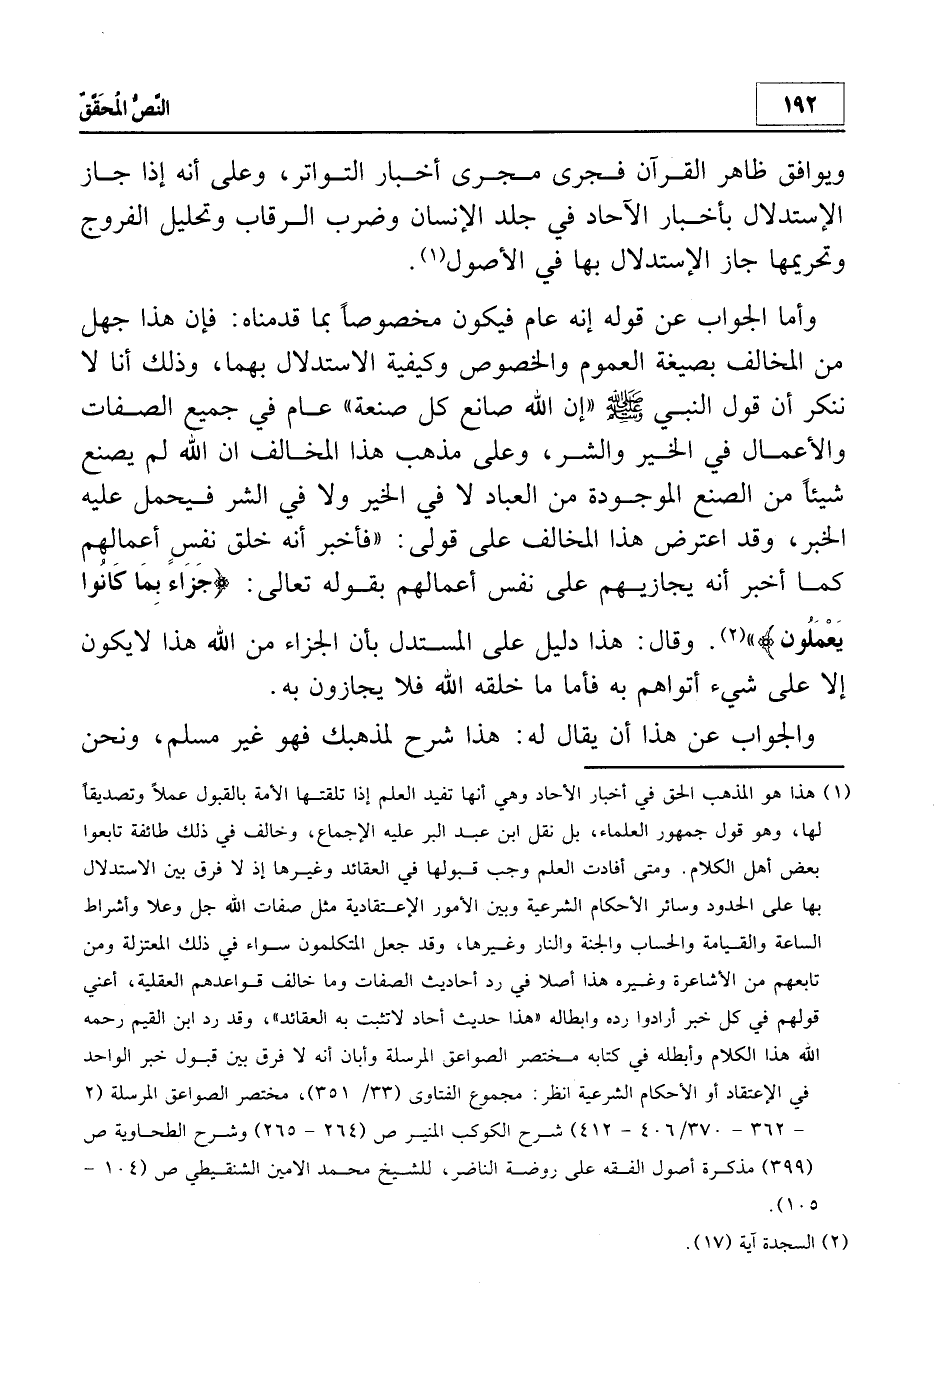 ١٩٢
النَّصُّ المُحَقَّقُ
ويوافق ظاهر القـرآن فـجرى مـجرى أخـبار التـواتر، وعلى أنه إذا جـاز
الإستدلال بأخـبار الآحاد في جلد الإنسان وضرب الـرقاب وتحليل الفروج
وتحريمها جاز الإستدلال بها في الأصول(١).
وأما الجواب عن قوله إنه عام فيكون مخصوصاً بما قدمناه: فإن هذا جهل
من المخالف بصيغة العموم والخصوص وكيفية الاستدلال بهما، وذلك أنا لا
ننكر أن قول النبـي ﷺ «إن الله صانع كل صنعة» عـام في جميع الصـفات
والأعمـال في الخـير والشـر، وعلى مذهب هذا المخـالف ان الله لم يصنع
شيئاً من الصنع الموجـودة من العباد لا في الخير ولا في الشر فـيحمل عليه
الخبر، وقد اعترض هذا المخالف على قولى: «فأخبر أنه خلق نفس أعمالهم
كمـا أخبر أنه يجازيـهم على نفس أعمالهم بقـوله تعالى: ﴿جَزَاءً بِمَا كَانُوا
يَعْمَلُون﴾»(٢). وقال: هذا دليل على المستدل بأن الجزاء من الله هذا لايكون
إلا على شيء أتواهم به فأما ما خلقه الله فلا يجازون به.
والجواب عن هذا أن يقال له: هذا شرح لمذهبك فهو غير مسلم، ونحن
(١) هذا هو المذهب الحق في أخبار الآحاد وهي أنها تفيد العلم إذا تلقتـها الأمة بالقبول عملاً وتصديقاً
لها، وهو قول جمهور العلماء، بل نقل ابن عبـد البر عليه الإجماع، وخالف في ذلك طائفة تابعوا
بعض أهل الكلام. ومتى أفادت العلم وجب قـبولها في العقائد وغيـرها إذ لا فرق بين الاستدلال
بها على الحدود وسائر الأحكام الشرعية وبين الأمور الإعـتقادية مثل صفات الله جل وعلا وأشراط
الساعة والقـيامة والحساب والجنة والنار وغـيرها، وقد جعل المتكلمون سـواء في ذلك المعتزلة ومن
تابعهم من الأشاعرة وغـيره هذا أصلا في رد أحاديث الصفات وما خالف قـواعدهم العقلية، أعني
قولهم في كل خبر أرادوا رده وابطاله «هذا حديث أحاد لاتثبت به العقائد»، وقد رد ابن القيم رحمه
الله هذا الكلام وأبطله في كتابه مـختصر الصواعق المرسلة وأبان أنه لا فرق بين قبـول خبر الواحد
في الإعتقاد أو الأحكام الشرعية انظر: مجموع الفتاوى (٣٣/ ٣٥١)، مختصر الصواعق المرسلة (٢
- ٣٦٢ - ٣٧٠/ ٤٠٦ - ٤١٢) شرح الكوكب المنيـر ص (٢٦٤ - ٢٦٥) وشرح الطحاوية ص
(٣٩٩) مذكـرة أصول الفقه على روضـة الناضر، للشيخ محمـد الامين الشنقيطي ص (١٠٤ -
١٠٥).
(٢) السجدة آية (١٧).